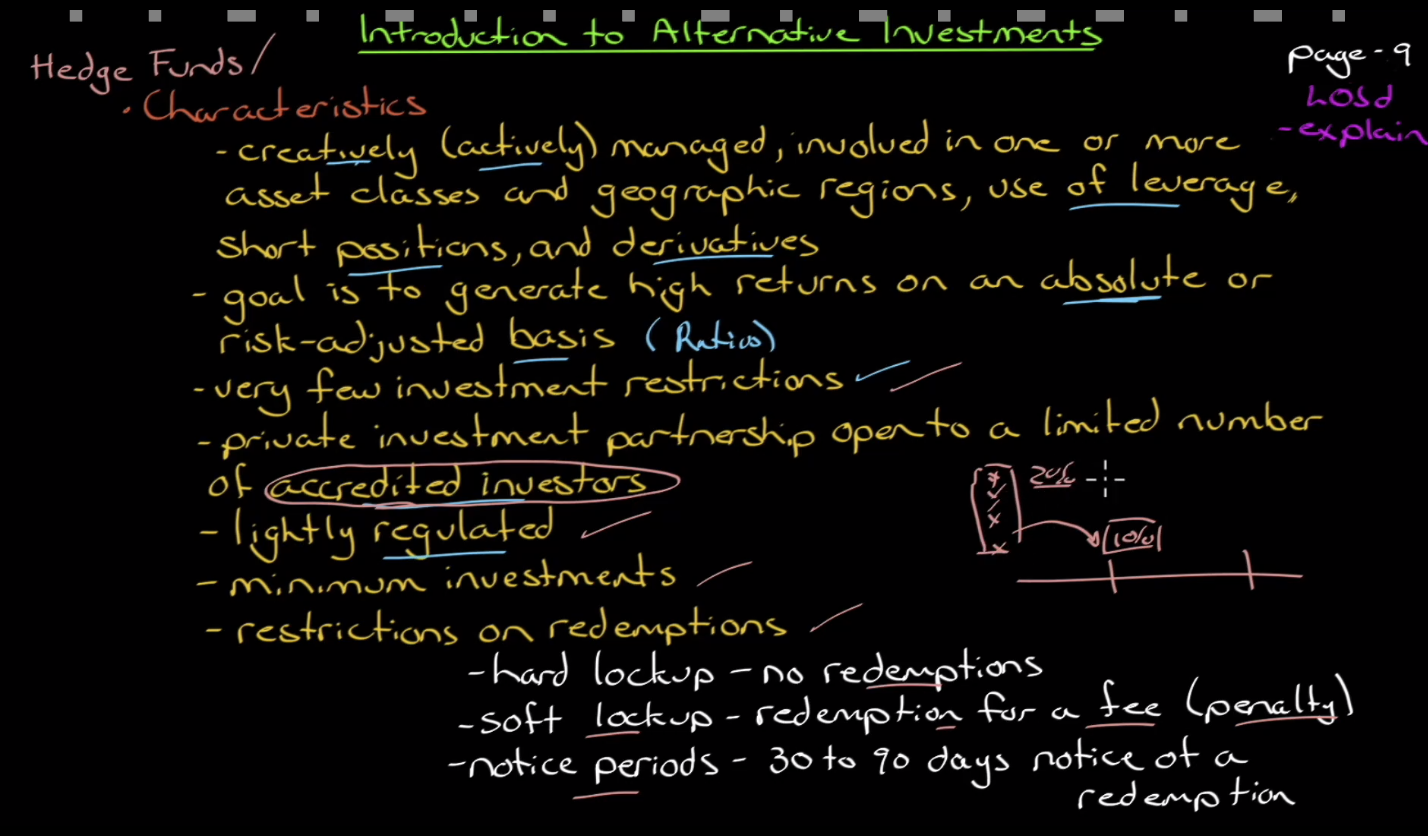 Introduction to Alternative Investments
page-9
Hedge Funds/
LOSd
- explain
• Characteristics
- creatively (actively) managed, involved in one or more
asset classes and geographic regions, use of leverage,
short positions, and derivatives
- goal is to generate high returns on an absolute or
risk-adjusted basis (Ratios)
- very few investment restrictions
- private investment partnership open to a limited number
of accredited investors
20%
- lightly regulated
10%
- minimum investments
- restrictions on redemptions
- hard lockup - no redemptions
- soft lockup - redemption for a fee (penalty)
- notice periods - 30 to 90 days notice of a
redemption